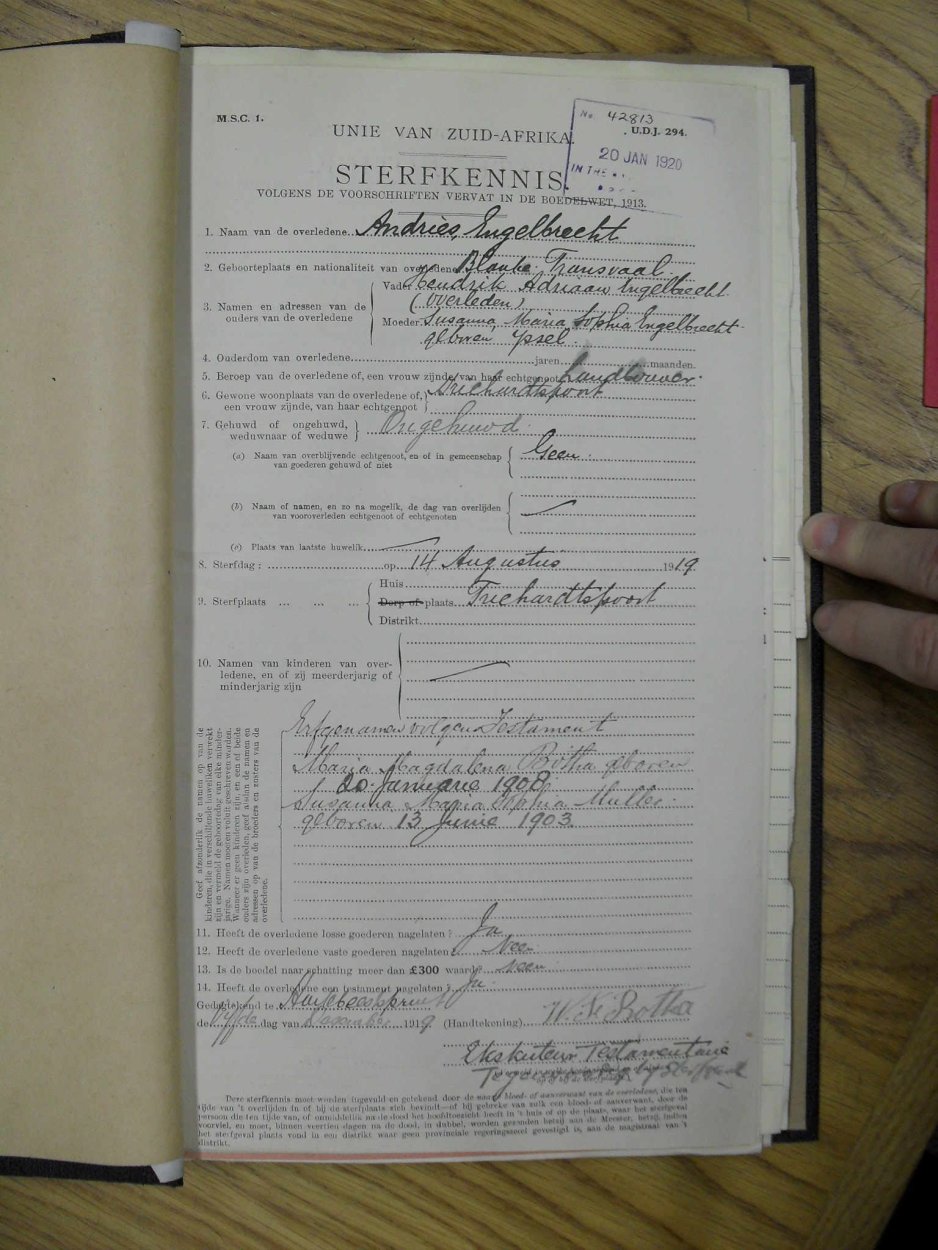 M.S.C. 1.
No 42813
U.D.J. 294.
UNIE VAN ZUID-AFRIKA.
20 JAN 1920
IN THE
STERFKENNIS.
VOLGENS DE VOORSCHRIFTEN VERVAT IN DE BOEDELWET, 1913.
1. Naam van de overledene Andries Engelbrecht
2. Geboorteplaats en nationaliteit van overledene Transvaal
3. Namen en adressen van de ouders van de overledene
Vader Hendrik Adriaan Engelbrecht
(overleden)
Moeder Susanna Maria Sophia Engelbrecht
geboren Ysel
4. Ouderdom van overledene jaren maanden.
5. Beroep van de overledene of, een vrouw zijnde, van haar echtgenoot Landbouwer.
6. Gewone woonplaats van de overledene of, een vrouw zijnde, van haar echtgenoot Trichardtspoort
7. Gehuwd of ongehuwd, weduwnaar of weduwe Ongehuwd
(a) Naam van overblijvende echtgenoot, en of in gemeenschap van goederen gehuwd of niet Geen.
(b) Naam of namen, en zo na mogelik, de dag van overlijden van vooroverleden echtgenoot of echtgenoten
(c) Plaats van laatste huwelik
8. Sterfdag: op 14 Augustus 1919
9. Sterfplaats ... ... ...
Huis
Dorp of plaats Trichardtspoort
Distrikt
10. Namen van kinderen van overledene, en of zij meerderjarig of minderjarig zijn
Geef afzonderlik de namen op van de kinderen, die in verschillende huweliken verwekt zijn en vermeld de geboortedag van elke minderjarige. Namen moeten voluit geschreven worden. Wanneer er geen kinderen zijn, en een of beide ouders zijn overleden, geef alsdan de namen en adressen op van de broeders en zusters van de overledene.
Erfgenamen volgens Testament
Maria Magdalena Botha geboren
20 Januarie 1908
Susanna Maria Sophia Muller
geboren 13 Junie 1903
11. Heeft de overledene losse goederen nagelaten? Ja
12. Heeft de overledene vaste goederen nagelaten? Neen
13. Is de boedel naar schatting meer dan £300 waard? Neen
14. Heeft de overledene een testament nagelaten? Ja.
Gedagtekend te
de vijfde dag van Desember 1919 (Handtekening) Botha
Eksekuteur Testamentaire
Deze sterfkennis moet worden ingevuld en getekend door de naaste bloed- of aanverwant van de overledene, die ten
tijde van 't overlijden in of bij de sterfplaats zich bevindt—of bij gebreke van zulk een bloed- of aanverwant, door de
persoon die ten tijde van, of onmiddellik na de dood het hoofdtoezicht heeft in 't huis of op de plaats, waar het sterfgeval
voorviel, en moet, binnen veertien dagen na de dood, in dubbel, worden gezonden hetzij aan de Meester, hetzij, indien
het sterfgeval plaats vond in een distrikt waar geen provinciale regeringszetel gevestigd is, aan de magistraat van 't
distrikt.